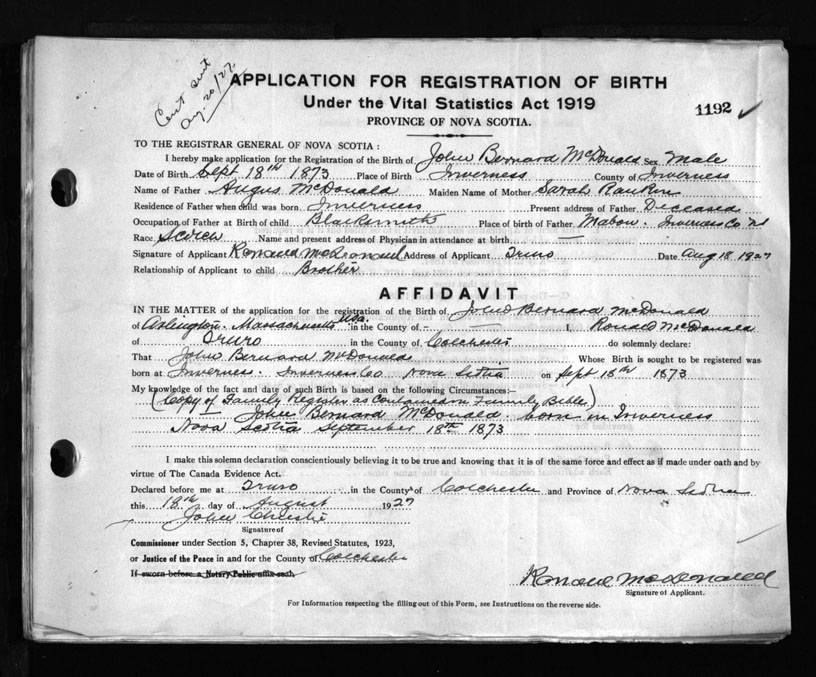 Cert sent
Aug. 20/27.
APPLICATION FOR REGISTRATION OF BIRTH
Under the Vital Statistics Act 1919
1192 ✓
PROVINCE OF NOVA SCOTIA.
TO THE REGISTRAR GENERAL OF NOVA SCOTIA :
I hereby make application for the Registration of the Birth of John Bernard McDonald Sex Male
Date of Birth Sept 18th 1873 Place of Birth Inverness County of Inverness
Name of Father Angus McDonald Maiden Name of Mother Sarah Rankin
Residence of Father when child was born Inverness Present address of Father Deceased
Occupation of Father at Birth of child Blacksmith Place of birth of Father Mabou. Inverness Co
Race Scotch Name and present address of Physician in attendance at birth —
Signature of Applicant Ronald McDonald Address of Applicant Truro Date Aug 18 1927
Relationship of Applicant to child Brother
AFFIDAVIT
IN THE MATTER of the application for the registration of the Birth of John Bernard McDonald
of Arlington. Massachusetts Usa. in the County of - — I, Ronald McDonald
of Truro in the County of Colchester do solemnly declare:
That John Bernard McDonald Whose Birth is sought to be registered was
born at Inverness. Inverness Co Nova Scotia on Sept 18th 1873
My knowledge of the fact and date of such Birth is based on the following Circumstances:—
(Copy of Family Register as Contained in Family Bible)
John Bernard McDonald. born in Inverness
Nova Scotia September 18th 1873
I make this solemn declaration conscientiously believing it to be true and knowing that it is of the same force and effect as if made under oath and by
virtue of The Canada Evidence Act.
Declared before me at Truro in the County of Colchester and Province of Nova Scotia
this 18th day of August 1927
John Christie
Signature of
Commissioner under Section 5, Chapter 38, Revised Statutes, 1923,
or Justice of the Peace in and for the County of Colchester
If sworn before a Notary Public affix seal
Ronald McDonald
Signature of Applicant.
For Information respecting the filling out of this Form, see Instructions on the reverse side.